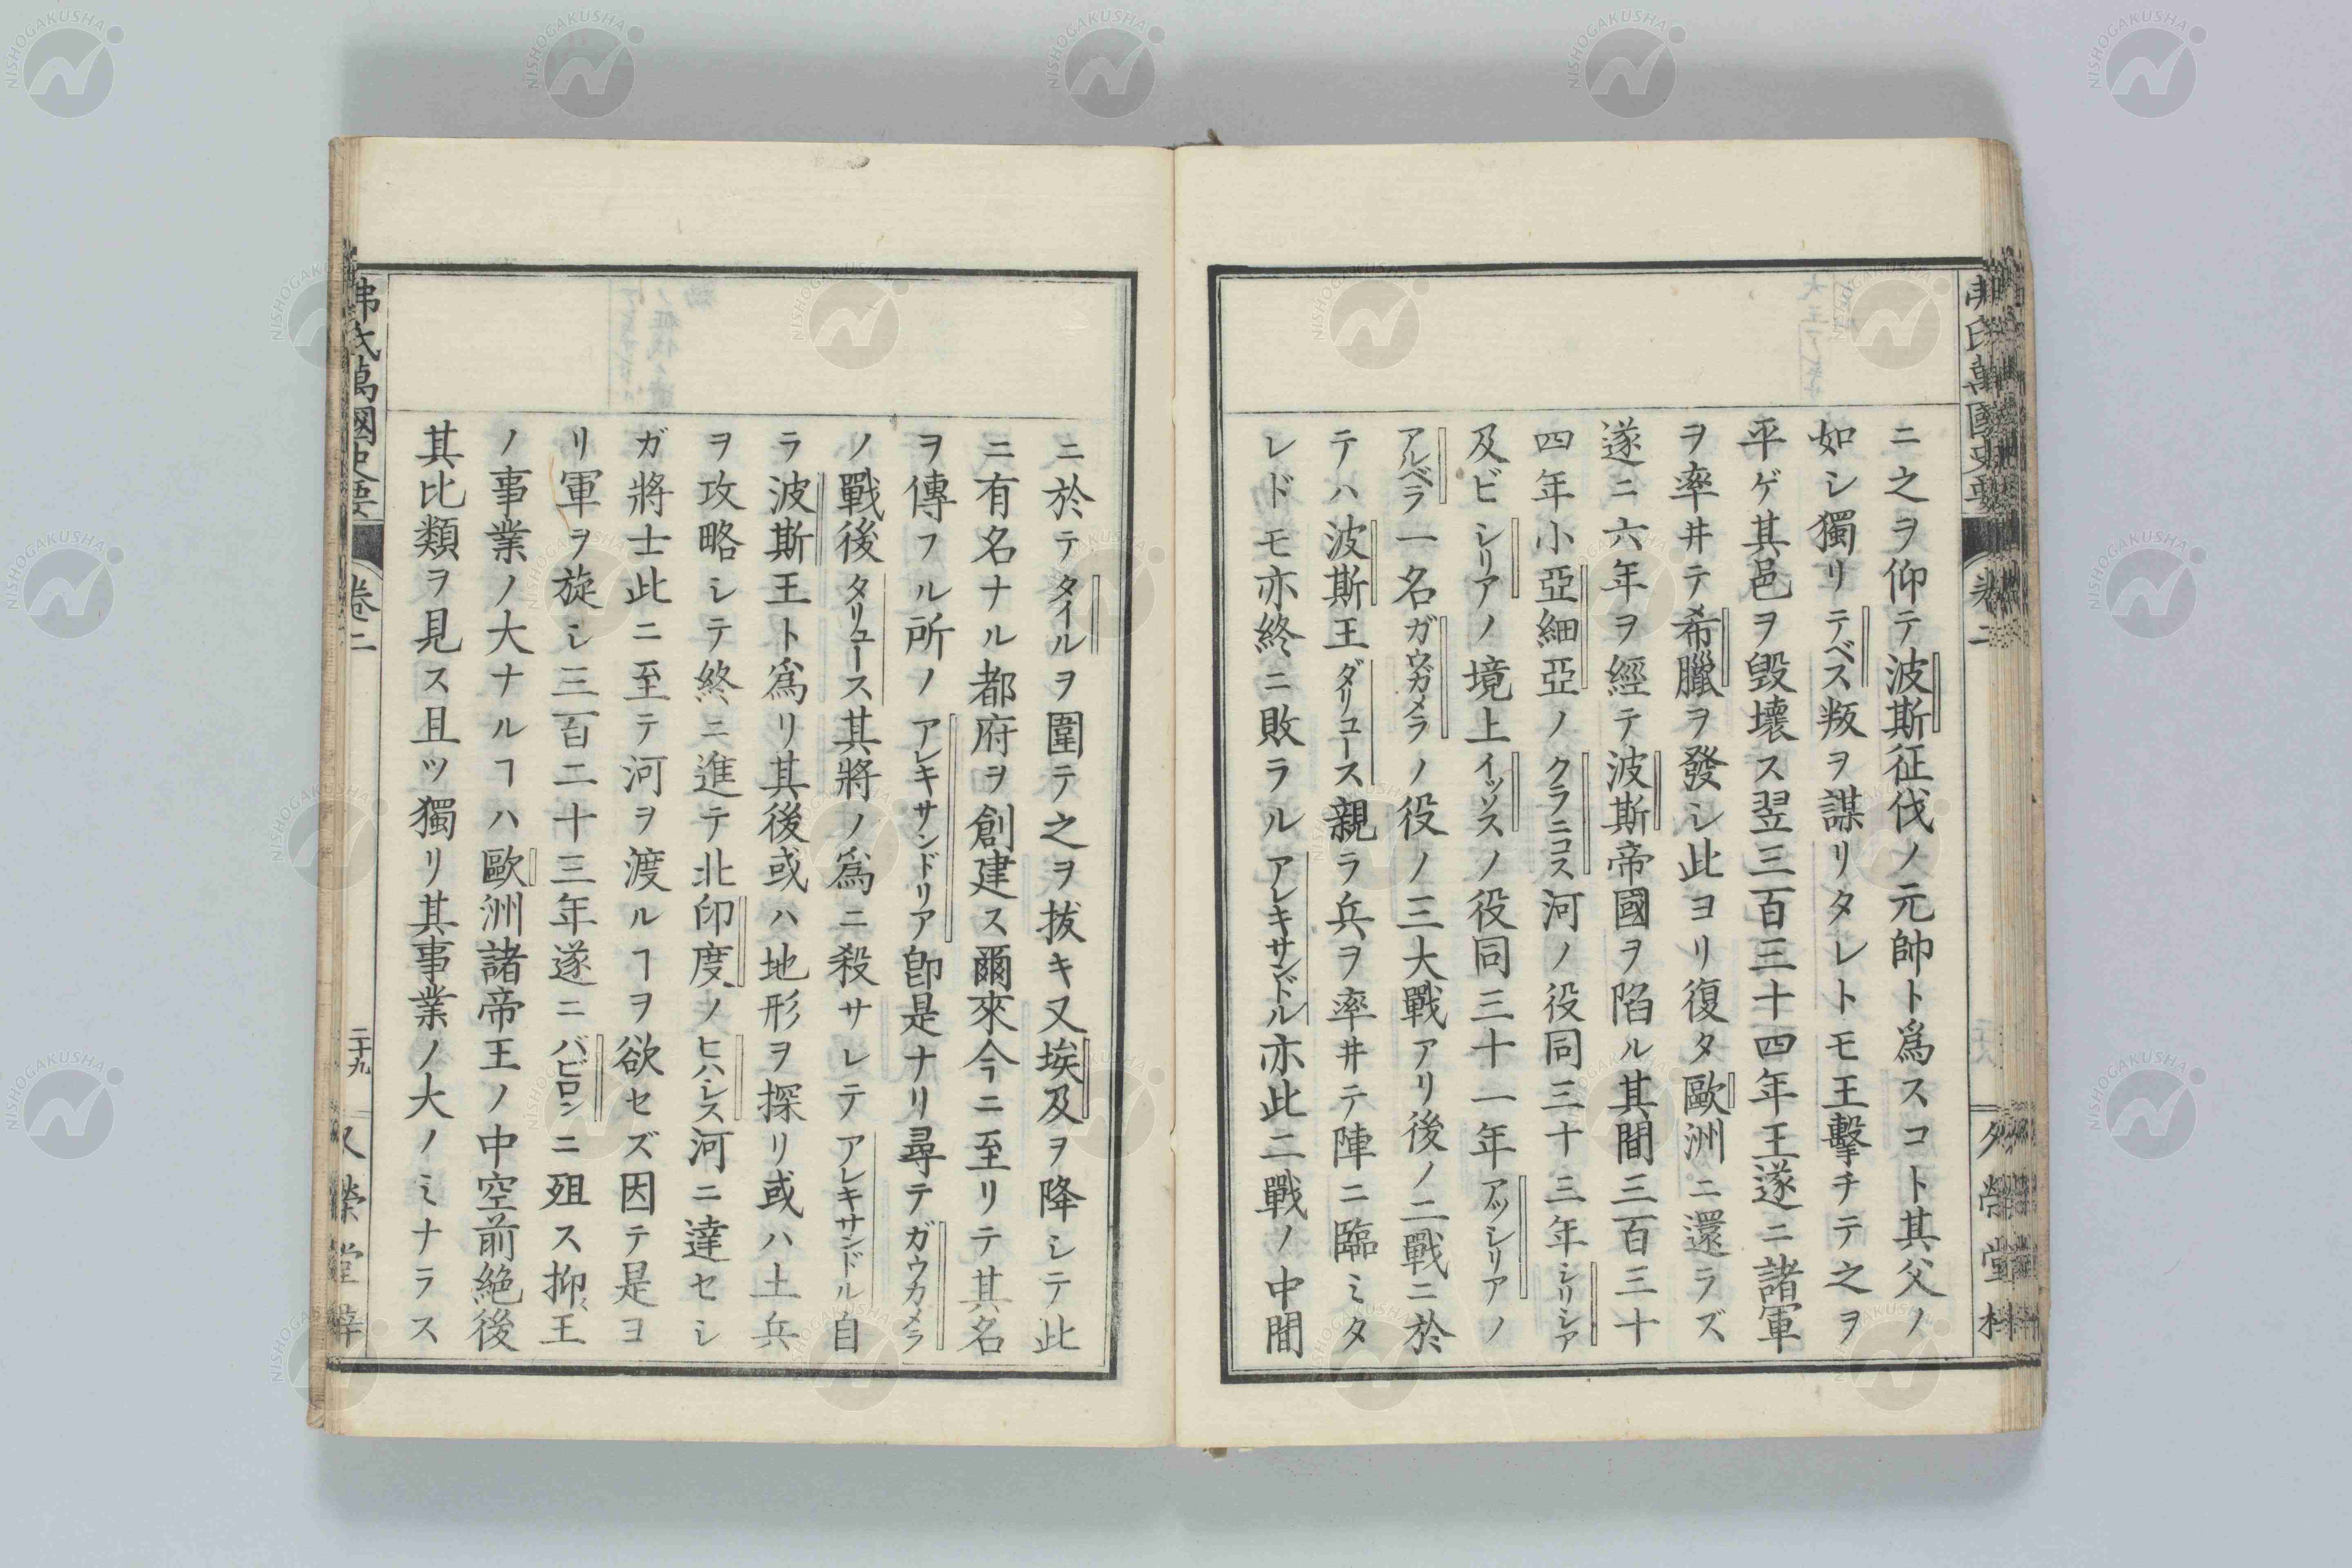 ニ之ヲ仰テ波斯征伐ノ元帥ト爲スコト其父ノ
如シ獨リテベス叛ヲ謀リタレトモ王擊チテ之ヲ
平ゲ其邑ヲ毀壞ス翌三百三十四年王遂ニ諸軍
ヲ率井テ希臘ヲ發シ此ヨリ復タ歐洲ニ還ラズ
遂ニ六年ヲ經テ波斯帝國ヲ陷ル其間三百三十
四年小亞細亞ノクラニコス河ノ役同三十三年シリシア
及ビシリアノ境上イッソスノ役同三十一年アッシリアノ
アルベラ一名ガウガメラノ役ノ三大戰アリ後ノ二戰ニ於
テハ波斯王ダリユース親ラ兵ヲ率井テ陣ニ臨ミタ
レドモ亦終ニ敗ラルアレキサンドル亦此二戰ノ中間
ニ於テタイルヲ圍テ之ヲ拔キ又埃及ヲ降シテ此
ニ有名ナル都府ヲ創建ス爾來今ニ至リテ其名
ヲ傳フル所ノアレキサンドリア卽是ナリ尋テガウカメラ
ノ戰後タリユース其將ノ爲ニ殺サレテアレキサンドル自
ラ波斯王ト爲リ其後或ハ地形ヲ探リ或ハ土兵
ヲ攻略シテ終ニ進テ北印度ノヒハシス河ニ達セシ
ガ將士此ニ至テ河ヲ渡ルヿヲ欲セズ因テ是ヨ
リ軍ヲ旋シ三百二十三年遂ニバビロンニ殂ス抑王
ノ事業ノ大ナルヿハ歐洲諸帝王ノ中空前絕後
其比類ヲ見ス且ツ獨リ其事業ノ大ノミナラス
弗氏萬國史要
卷二
二十九